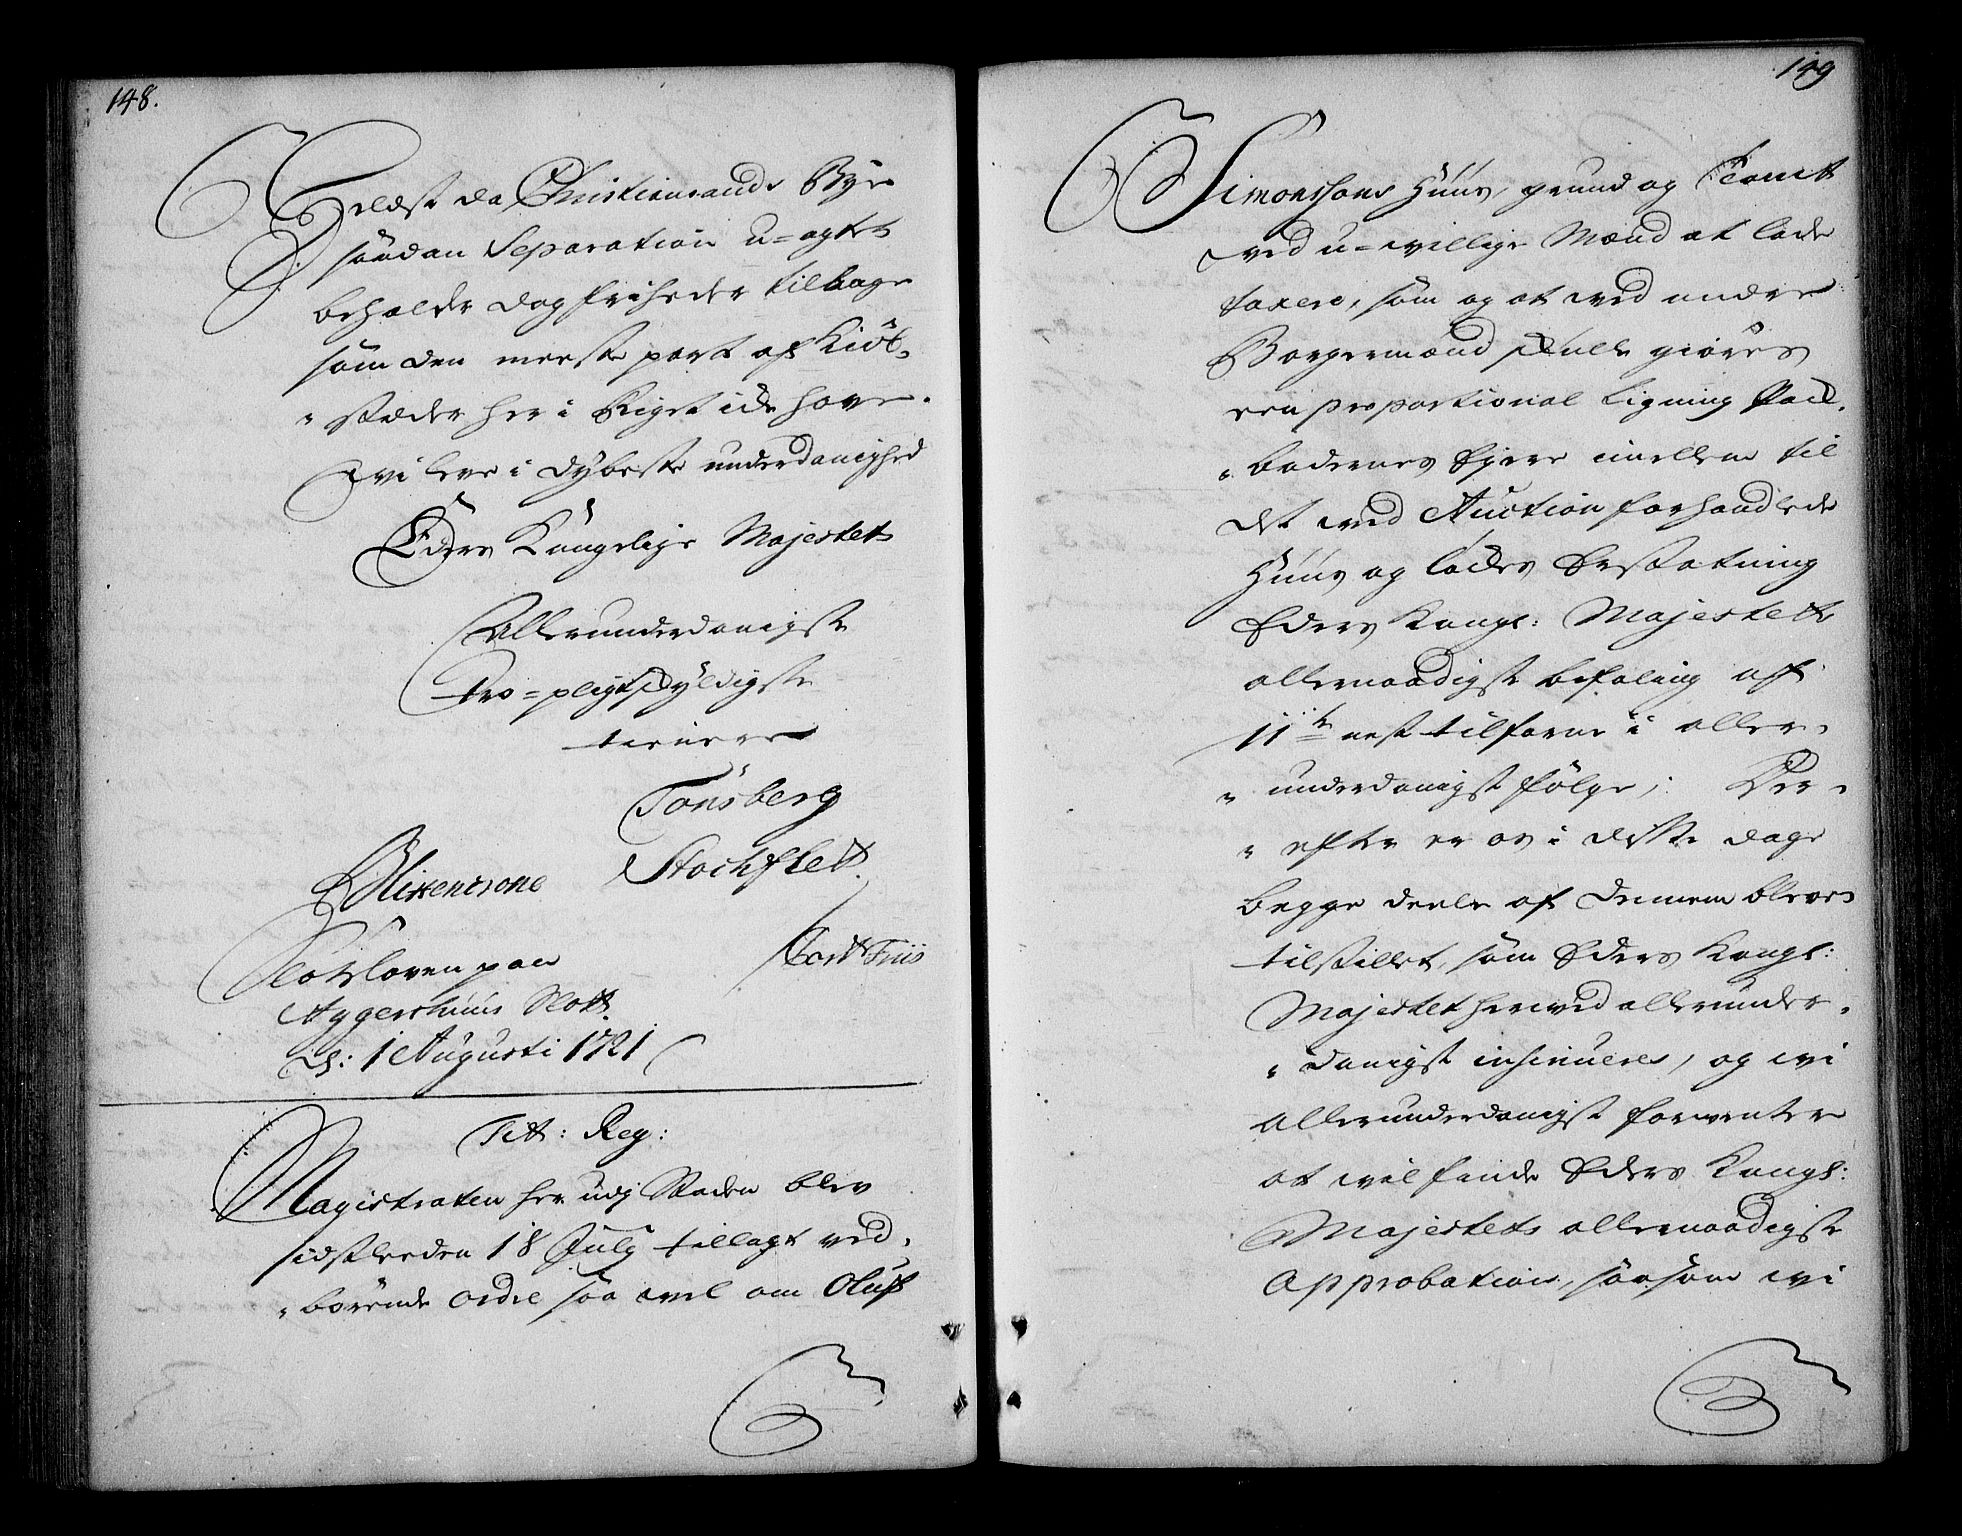 148.
heldst da Christiansands Bye
saadan Separation u-agtet
beholder dog friheder tilbage
som den meeste part af Kiöb-
"stæder her i Riget ide have.
vi leve i dybeste underdanighed
Eders Kongelige Majestets
Allerunderdanigste
tro-pligtskyldigste
tienere
Tönsberg
Stochflett.
Vibe
Slotsloven paa
Aggershuus Slott.
d: 1 Augusti 1721
Titt: Reg:
Magistraten her udj Staden blev
sidstleeden 18 July tillagt ved-
"börende ordre saa vel om Oluf
149
Simonssøns Huus, grund og Tomt
ved u-villige Mænd at lade
taxere, som og at ved andre
Borgermænd skulle giöres
een proportional Ligning Vad-
"bodernes Eyere imellem til
det ved Auction forhandlede
Huus og Lodes Erstatning
Eders Kongl: Majestets
allernaadigste befaling af
11te nest tilforne i aller-
"underdanigst fölge; Der-
"efter er os i disse dage
begge deele af dennem bleven
tilstillet, som Eders Kongl:
Majestet herved allerunder-
"danigst insinueres, og vi
allerunderdanigst forventer
at vil finde Eders Kongl:
Majestets allernaadigste
Approbation, saasom vi